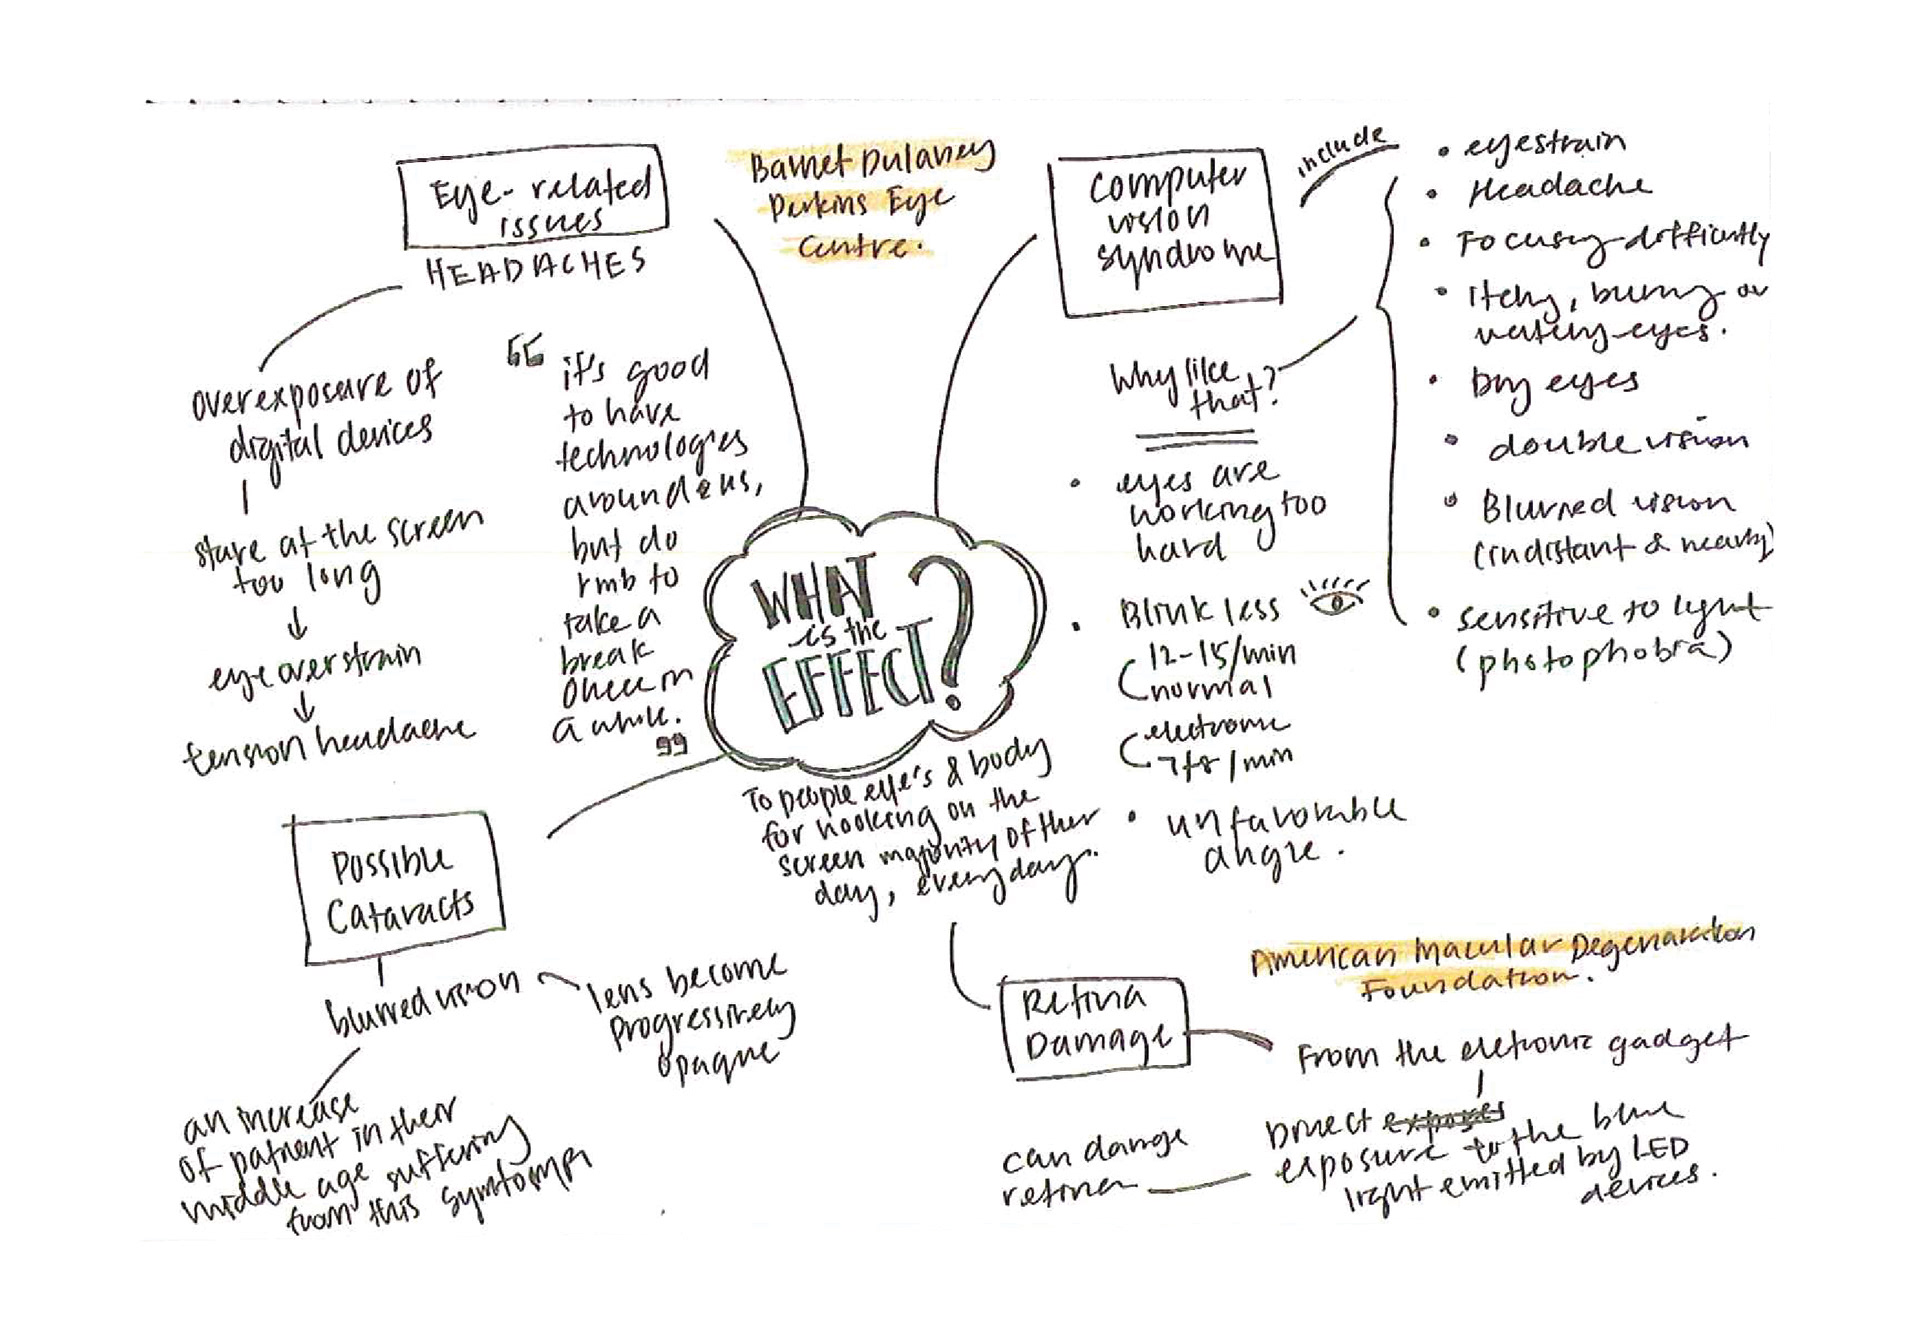 Eye-related
issues
HEADACHES
overexposure of
digital devices
stare at the screen
too long
eye overstrain
tension headache
Barnet Dulaney
Perkins Eye
Centre.
it's good
to have
technologies
around us,
but do
rmb to
take a
break
once in
a while.
WHAT
is the
EFFECT?
To people eye's & body
for hooking on the
screen majority of ther
day, everyday.
computer
vision
syndrome
include
• eyestrain
• Headache
• Focusing difficulty
• Itchy, burning or
watery eyes.
• Dry eyes
• double vision
• Blurred vision
(in distant & nearby)
• sensitive to light
(photophobia)
Why like
that?
• eyes are
working too
hard
• Blink less
12-15/min
normal
electronic
7t8/min
• unfavorable
angle.
Possible
Cataracts
blurred vision
lens become
progressively
opaque
an increase
of patient in their
middle age suffering
from this
Retina
Damage
American Macular Degeneration
Foundation.
From the eletronic gadget
Direct
exposure to the blue
light emitted by LED
devices.
can damage
retina